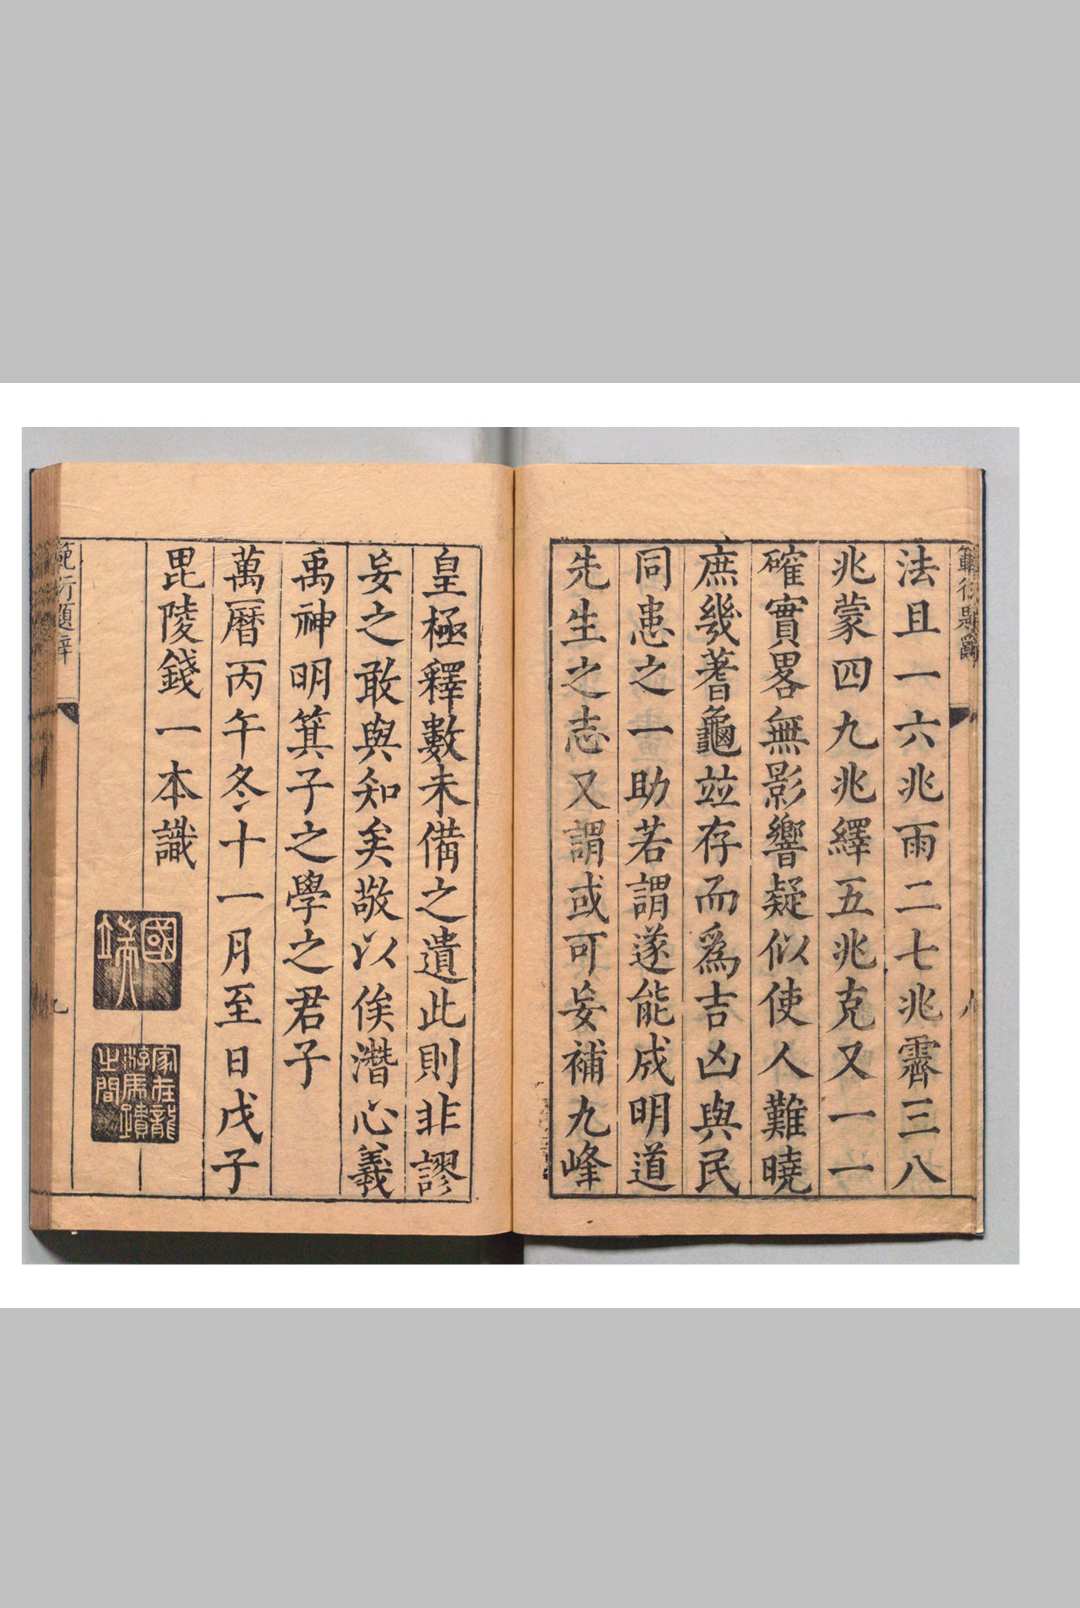 範衍題辭
法且一六兆雨二七兆霽三八
兆蒙四九兆繹五兆克又一一
確實畧無影響疑似使人難曉
庶幾蓍龜並存而爲吉凶與民
同患之一助若謂遂能成明道
先生之志又謂或可妄補九峰
皇極釋數未備之遺此則非謬
妄之敢與知矣敬以俟潛心義
禹神明箕子之學之君子
萬曆丙午冬十一月至日戊子
毘陵錢一本識
國端人
家在龍游虎蹟之間
範衍題辭
九